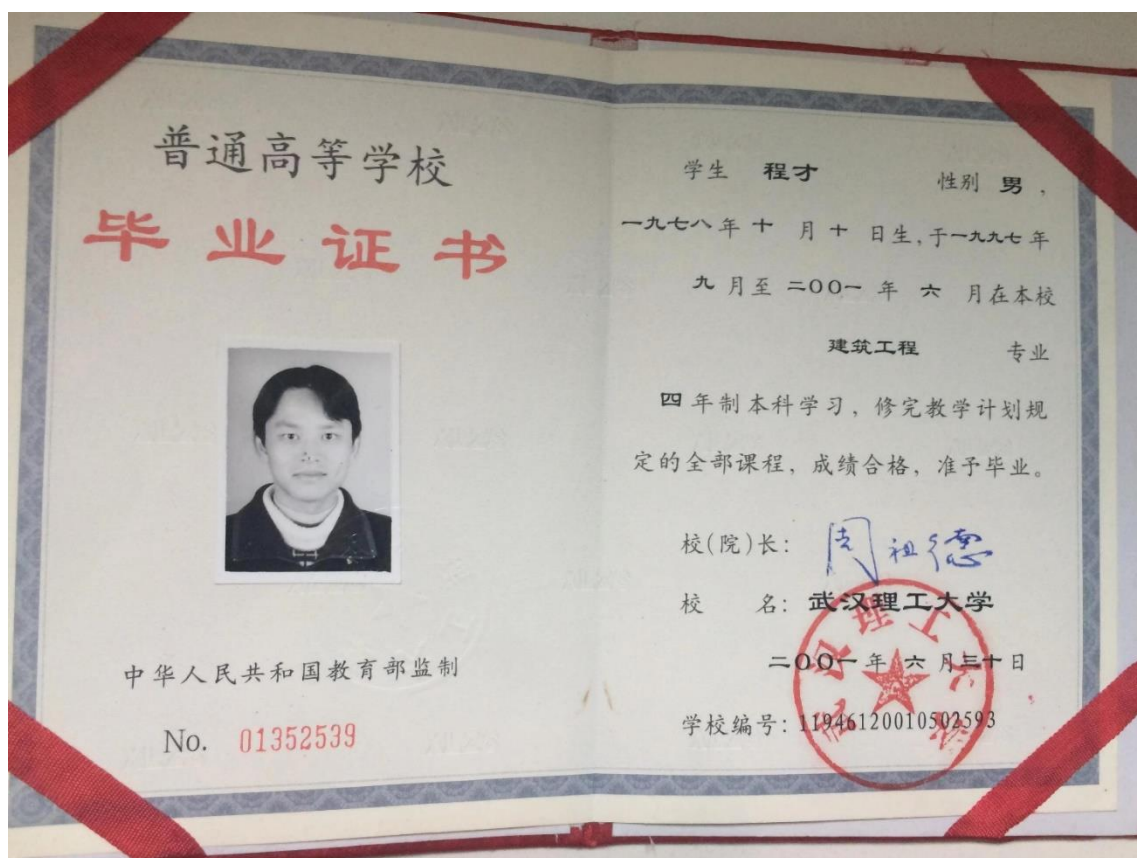 普通高等学校
毕业证书
中华人民共和国教育部监制
No. 01352539
学生 程才 性别 男，
一九七八年十月十日生，于一九九七年
九月至二〇〇一年六月在本校
建筑工程 专业
四年制本科学习，修完教学计划规
定的全部课程，成绩合格，准予毕业。
校(院)长：周祖德
校 名：武汉理工大学
二〇〇一年六月三十日
学校编号：11946120010502593
武汉理工大学